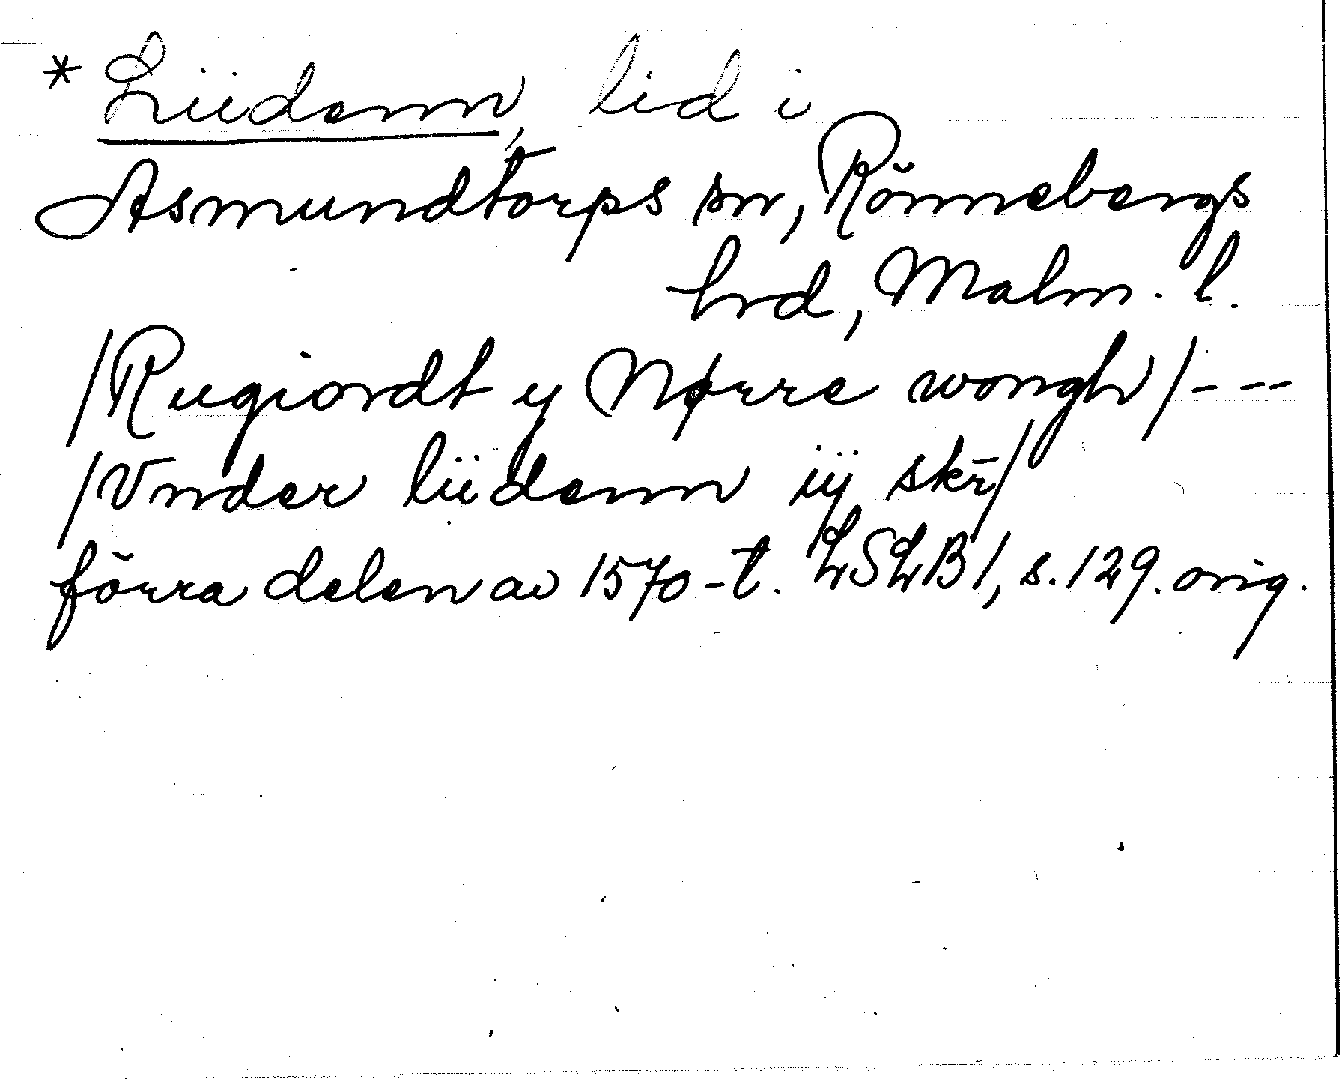 * Liidenn, lid i
Asmundtorps sn, Rönnebergs
hrd, Malm. l.
/Rugiordt ij Nørre wongh/---
/Vnder liidenn iij skr̄/
förra delen av 1570-t. LSLB1, s.129. orig.